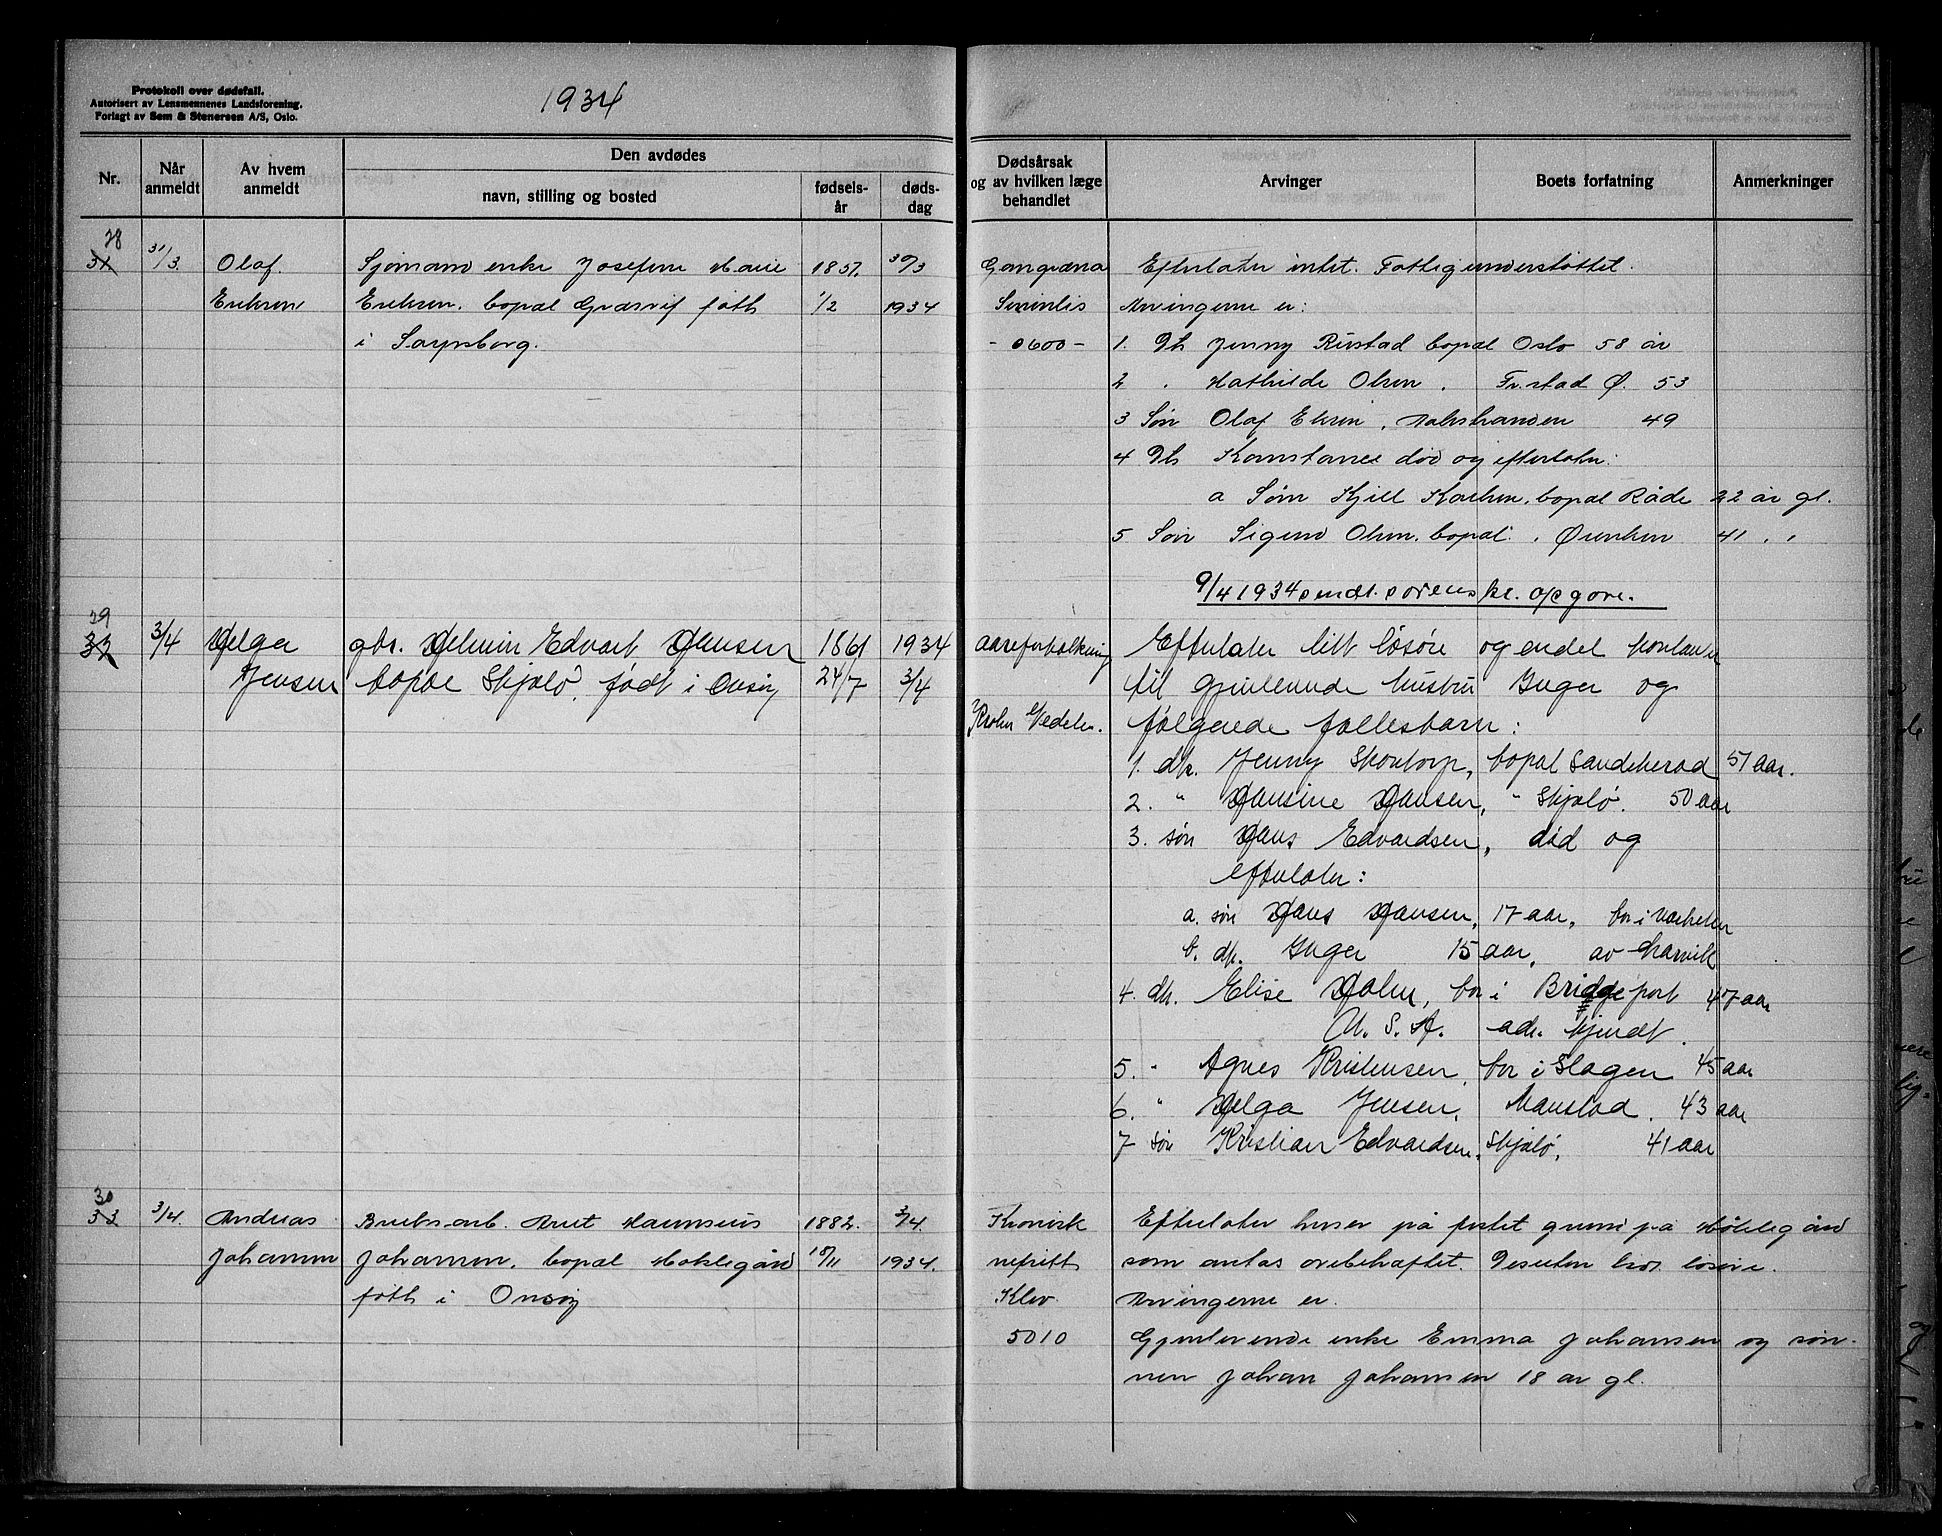 Protokoll over dødsfall.
Autorisert av Lensmennenes Landsforening.
Forlagt av Sem & Stenersen A/S, Oslo.
1934
Nr.
Når anmeldt
Av hvem anmeldt
Den avdødes
navn, stilling og bosted
fødsels-år
døds-dag
Dødsårsak og av hvilken læge behandlet
Arvinger
Boets forfatning
Anmerkninger
28
31 31/3. Olaf Sjømand enke Josefine Marie 1857. 30/3 Gangræna Efterlater intet. Fattigunderstøttet.
Eriksen Eriksen. bopal Græsvik føtt 1/2 1934 Senilis Arvingerne er:
i Sarpsborg. - 0600 - 1. Dt Jenny Rustad bopal Oslo 58 år
2 " Mathilde Olsen. Fr.stad Ø. 53
3 Søn Olaf Eriksen, 49
4 Dt Konstance død og efterlater:
a Søn Kjell Karlsen, bopal Råde 22 år gl.
5 Søn Sigurd Olsen. bopal. 41 " "
9/4 1934 sendt sorenskr. opgave.
29
32 3/4 Helga gbr. Helmin Edvart Hansen 1861 1934 aareforkalkning Efterlater litt løsøre og endel kontanter
Jensen bopæl Skjælø, født i Onsøy 24/7 3/4 til gjenlevende hustru Inger og
Krohn Vedeler. følgende fællesbarn:
1. dtr. Jenny Skontorp, bopal Sandeherad 51 aar.
2. " Hansine Hansen, " Skjælø. 50 aar
3. søn Hans Edvardsen, død og
efterlater:
a. søn Hans Hansen, 17 aar, bor i
b. dtr. Inger 15 aar,
4. dtr. Elise Holm, bor i Bridgeport 47 aar
U. S. A. adr. kjendt.
5. " Agnes Kristensen, bor i Slagen 45 aar
6. " Helga Jensen, Manstad. 43 aar
7 søn Kristian Edvardsen, Skjælø, 41 aar
30
33 3/4. Andreas Bruksarb. Arnt Maurisius 1882. 2/4. Kronisk Efterlater huser på festet grunn på Moklegård
Johansen Johansen, bopal Moklegård 18/11 1934. nefritt som antas overbehæftet. Desuten litt løsøre.
føtt i Onsøy Klev Arvingerne er.
5010 Gjenlevende enke Emma Johansen og søn-
nen Johan Johansen 18 år gl.